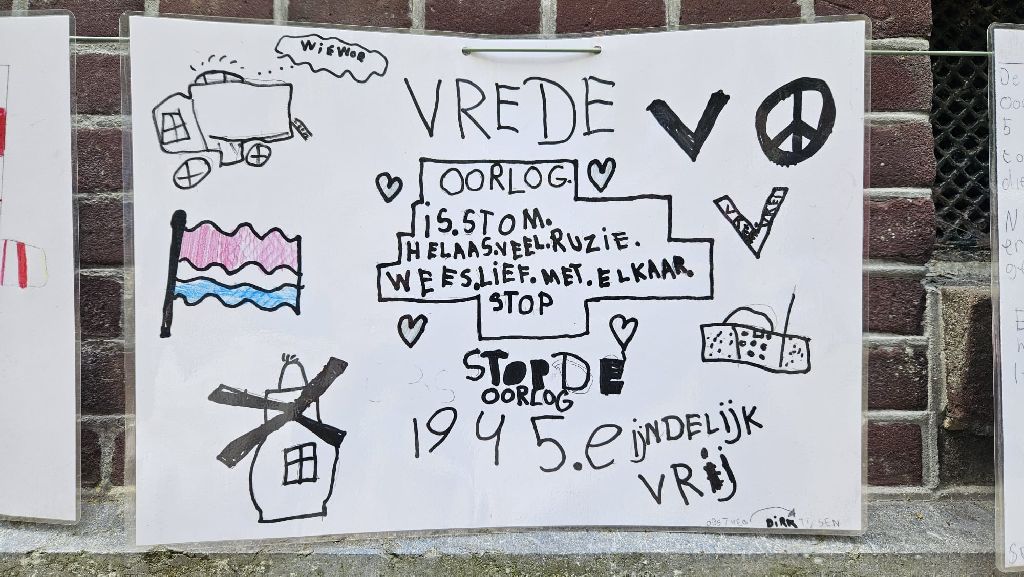 WiEWOR
VREDE
V
OORLOG.
iS.STOM.
HELAAS.VEEL.RUZIE.
WEES.LIEF.MET.ELKAAR.
STOP
STOP DE
OORLOG
1945.eijNDELIJK
VRij
DiRK